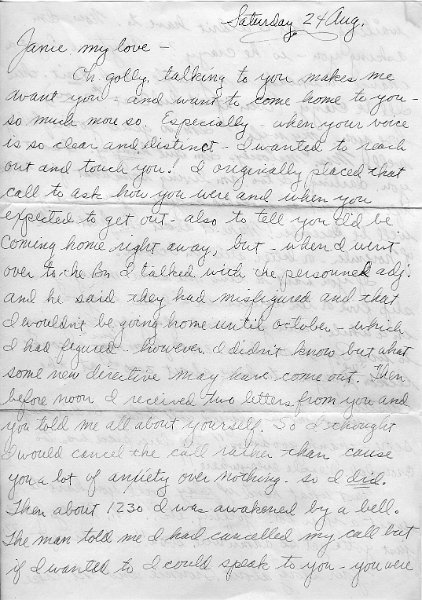 Saturday 24 Aug.
Janie my love -
Oh golly, talking to you makes me
want you - and want to come home to you -
so much more so. Especially - when your voice
is so clear and distinct - I wanted to reach
out and touch you! I originally placed that
call to ask how you were and when you
expected to get out - also to tell you I'd be
coming home right away, but - when I went
over to the Bn I talked with the personnel adj.
and he said they had misfigured and that
I wouldn't be going home until October - which
I had figured - however I didn't know but what
some new directive may have come out. Then
before noon I received two letters from you and
you told me all about yourself. So I thought
I would cancel the call rather than cause
you a lot of anxiety over nothing. so I did.
Then about 1230 I was awakened by a bell.
The man told me I had cancelled my call but
if I wanted to I could speak to you - you were